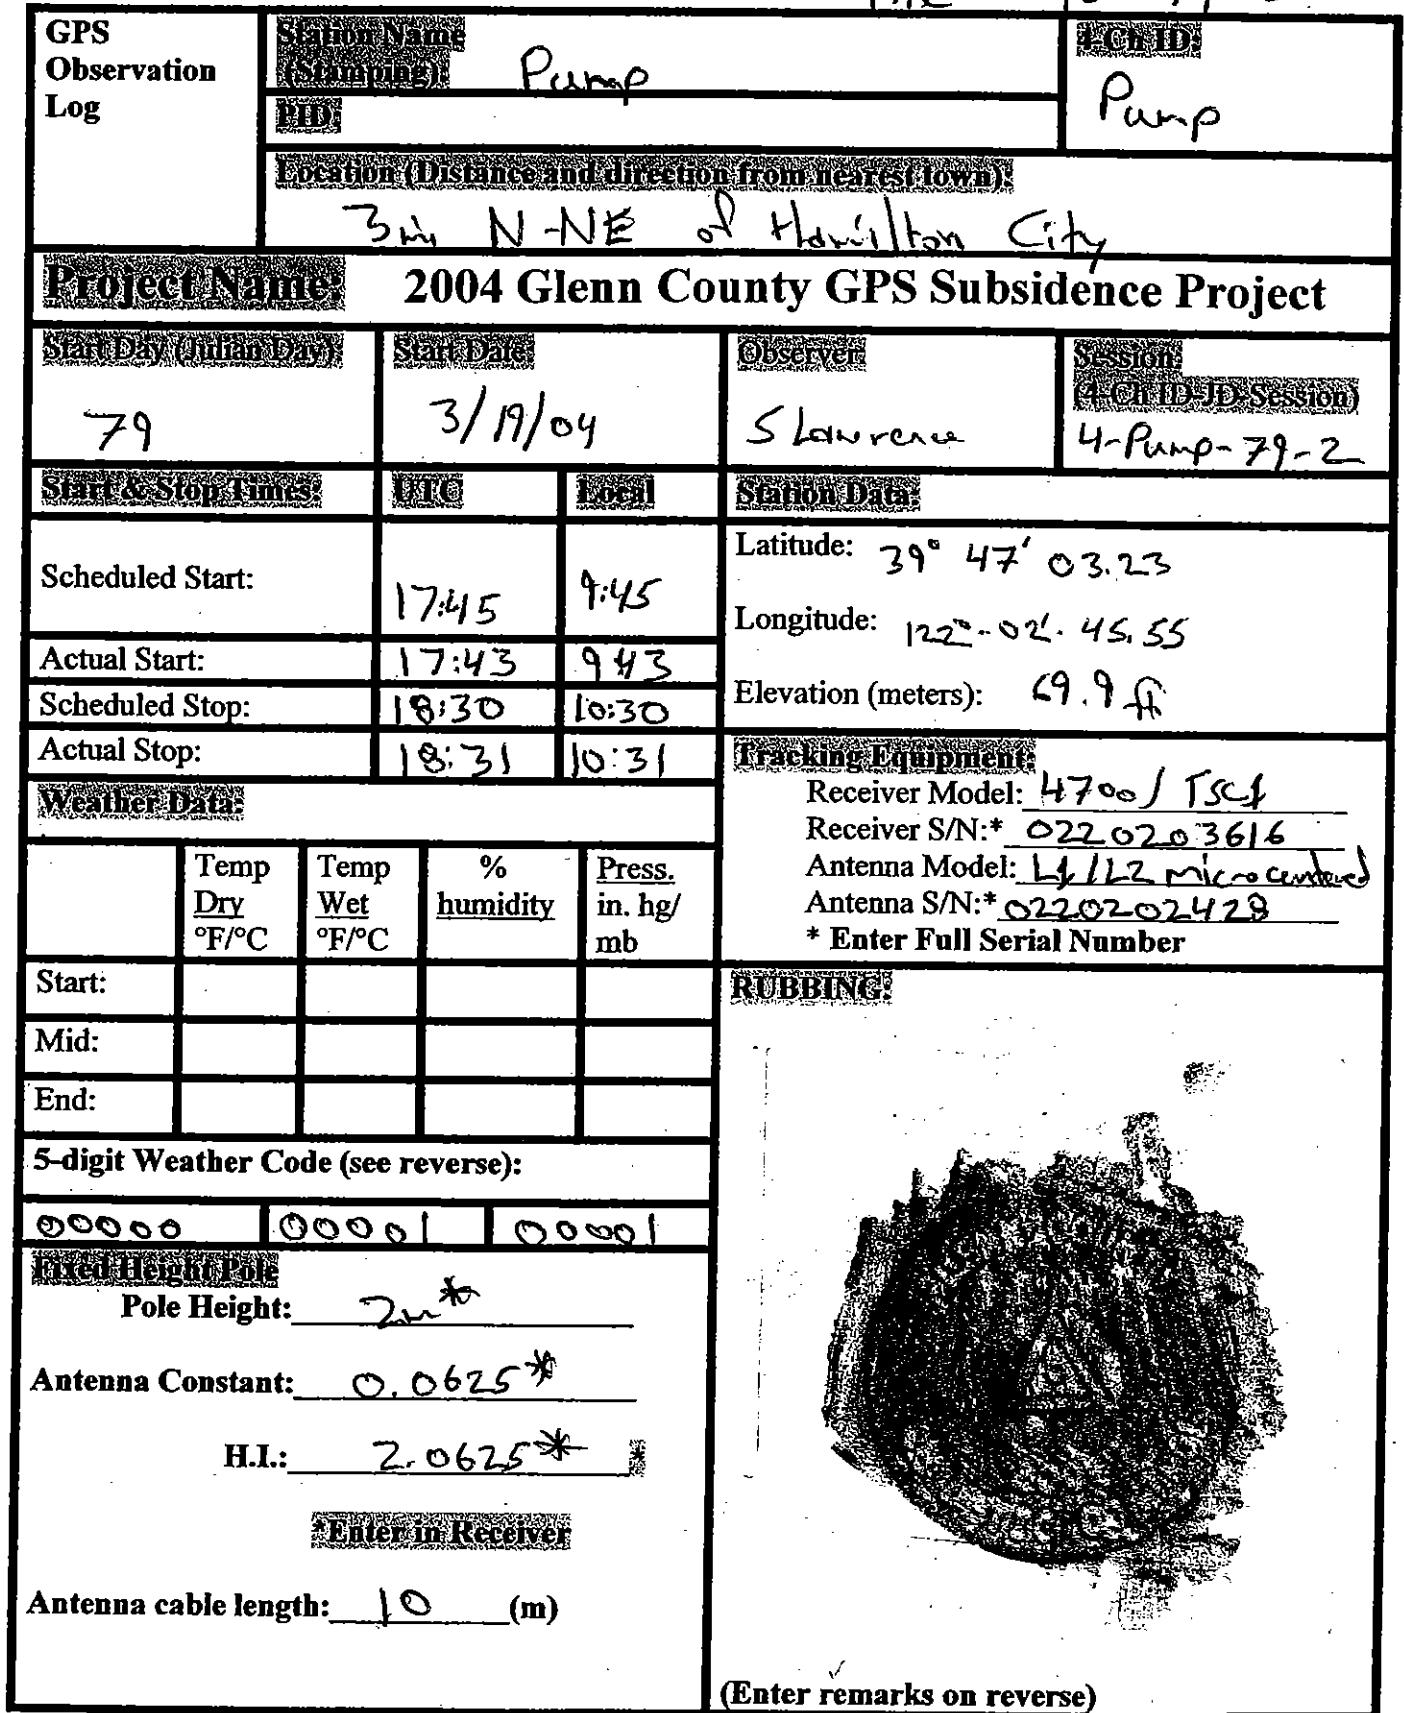 GPS
Observation
Log
Station Name
(Stamping): Pump
PID:
4-Ch ID:
Pump
Location (Distance and direction from nearest town):
3 mi N-NE of Hamilton City
Project Name: 2004 Glenn County GPS Subsidence Project
Start Day (Julian Day):
79
Start Date:
3/19/04
Observer:
S Lawrence
Session:
(4-Ch ID-JD-Session)
4-Pump-79-2
Start & Stop Times: UTC Local
Scheduled Start: 17:45 9:45
Actual Start: 17:43 9:43
Scheduled Stop: 18:30 10:30
Actual Stop: 18:31 10:31
Station Data:
Latitude: 39° 47' 03.23
Longitude: 122°-02'-45.55
Elevation (meters): 69.9 ft
Tracking Equipment:
Receiver Model: 4700 / TSC1
Receiver S/N:* 0220203616
Antenna Model: L1/L2 microcentered
Antenna S/N:* 0220202428
* Enter Full Serial Number
Weather Data:
Temp
Dry
°F/°C
Temp
Wet
°F/°C
%
humidity
Press.
in. hg/
mb
Start:
Mid:
End:
5-digit Weather Code (see reverse):
00000 00001 00001
Fixed Height Pole
Pole Height: 2m*
Antenna Constant: 0.0625*
H.I.: 2.0625* *
*Enter in Receiver
Antenna cable length: 10 (m)
RUBBING:
(Enter remarks on reverse)